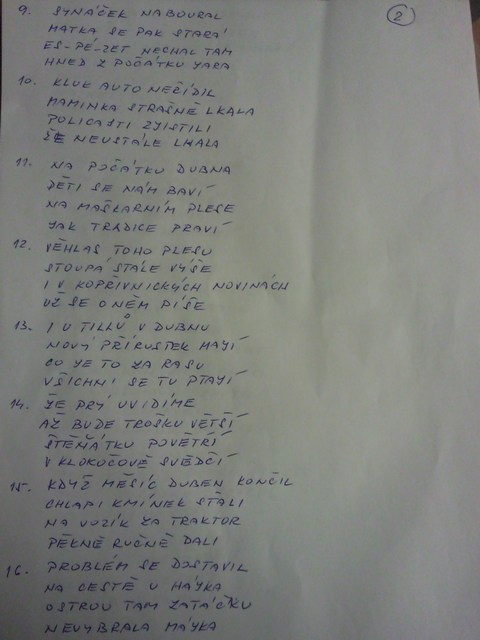 2
9. SYNÁČEK NABOURAL
MATKA SE PAK STARÁ
ES-PÉ-ZET NECHAL TAM
HNED Z POČÁTKU JARA
10. KLUK AUTO NEŘÍDIL
MAMINKA STRAŠNĚ LKALA
POLICAJTI ZJISTILI
ŽE NEUSTÁLE LHALA
11. NA POČÁTKU DUBNA
DĚTI SE NÁM BAVÍ
NA MAŠKARNÍM PLESE
JAK TRADICE PRAVÍ
12. VĚHLAS TOHO PLESU
STOUPÁ STÁLE VÝŠE
I V KOPŘIVNICKÝCH NOVINÁCH
UŽ SE O NĚM PÍŠE
13. I U TILLŮ V DUBNU
NOVÝ PŘÍRUSTEK MAJÍ
CO JE TO ZA RASU
VŠICHNI SE TU PTAJÍ
14. ŽE PRÝ UVIDÍME
AŽ BUDE TROŠKU VĚTŠÍ
ŠTĚŇÁTKU POVĚTŘÍ
V KLOKOČOVĚ SVĚDČÍ
15. KDYŽ MĚSÍC DUBEN KONČIL
CHLAPI KMÍNEK SŤALI
NA VOZÍK ZA TRAKTOR
PĚKNĚ RUČNĚ DALI
16. PROBLÉM SE DOSTAVIL
NA CESTĚ U HÁJKA
OSTROU TAM ZATÁČKU
NEVYBRALA MÁJKA